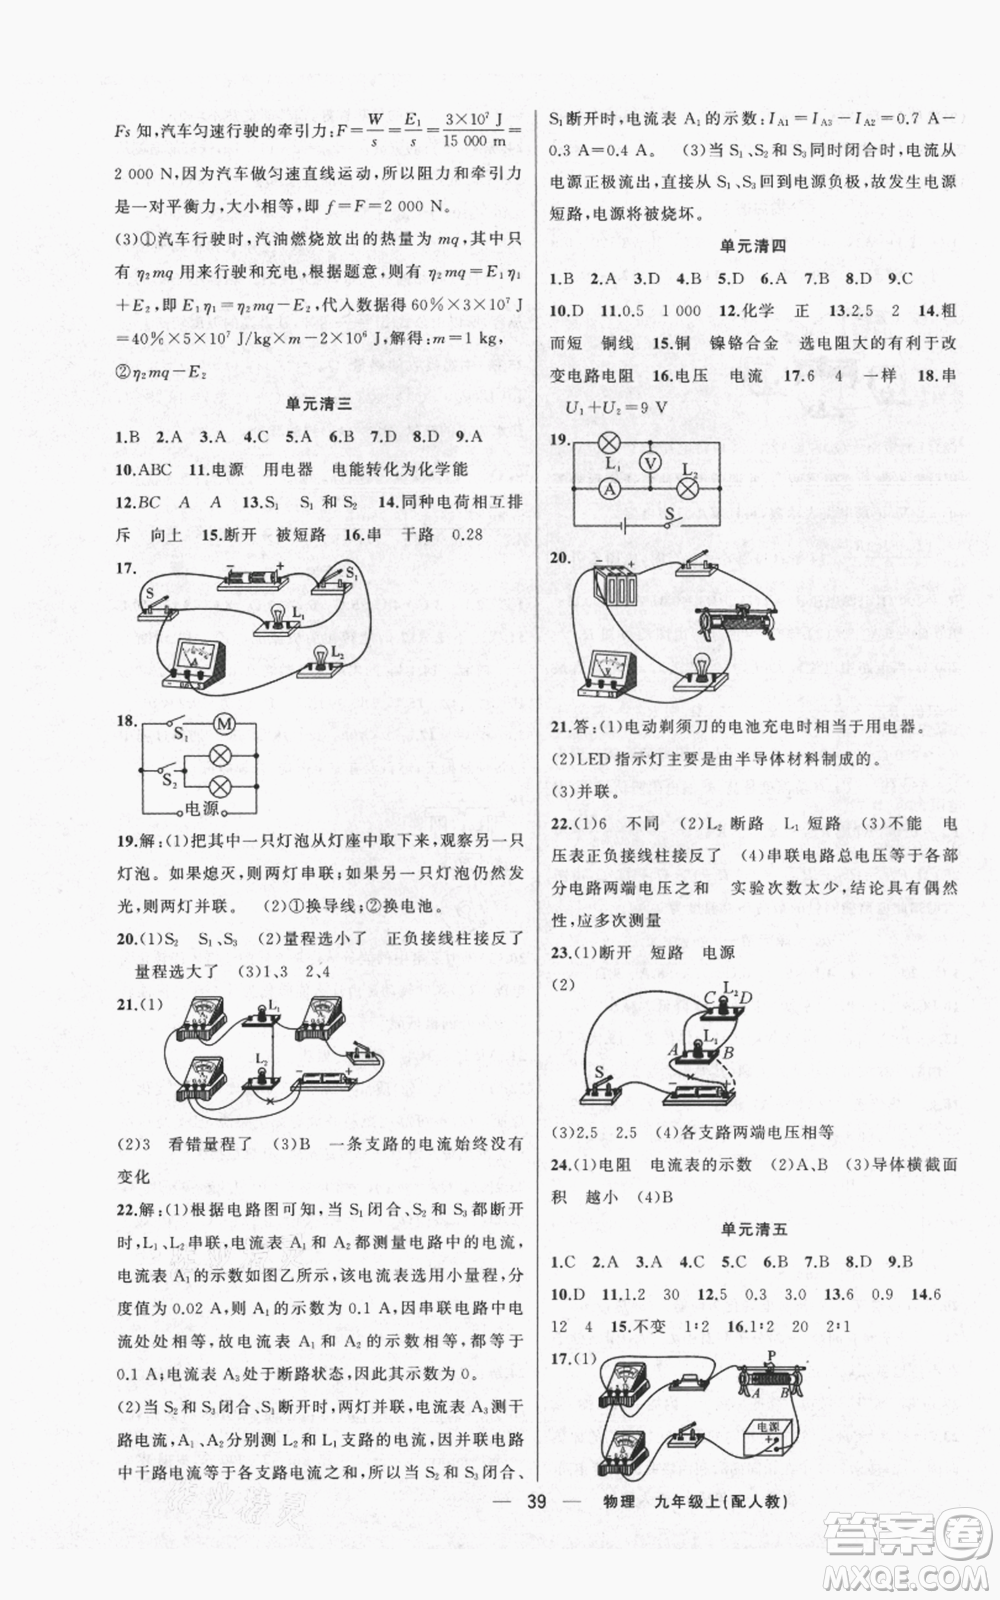 Fs 知,汽车匀速行驶的牵引力:F=W/s=E₁/s=3×10⁷ J/15 000 m=
2 000 N,因为汽车做匀速直线运动,所以阻力和牵引力
是一对平衡力,大小相等,即 f=F=2 000 N。
(3)①汽车行驶时,汽油燃烧放出的热量为 mq,其中只
有 η₂mq 用来行驶和充电,根据题意,则有 η₂mq=E₁η₁
+E₂,即 E₁η₁=η₂mq-E₂,代入数据得 60%×3×10⁷ J
=40%×5×10⁷ J/kg×m-2×10⁶ J,解得:m=1 kg,
②η₂mq-E₂
单元清三
1.B 2.A 3.A 4.C 5.A 6.B 7.D 8.D 9.A
10.ABC 11.电源 用电器 电能转化为化学能
12.BC A A 13.S₁ S₁ 和 S₂ 14.同种电荷相互排
斥 向上 15.断开 被短路 16.串 干路 0.28
17.
- + S₁
S L₁
A
L₂
18.
S₁ M
S₂
电源
19.解:(1)把其中一只灯泡从灯座中取下来,观察另一只
灯泡。如果熄灭,则两灯串联;如果另一只灯泡仍然发
光,则两灯并联。 (2)①换导线;②换电池。
20.(1)S₂ S₁、S₃ (2)量程选小了 正负接线柱接反了
量程选大了 (3)1、3 2、4
21.(1)
L₁
L₂
- +
×
(2)3 看错量程了 (3)B 一条支路的电流始终没有
变化
22.解:(1)根据电路图可知,当 S₁ 闭合、S₂ 和 S₃ 都断开
时,L₁、L₂ 串联,电流表 A₁ 和 A₂ 都测量电路中的电流,
电流表 A₁ 的示数如图乙所示,该电流表选用小量程,分
度值为 0.02 A,则 A₁ 的示数为 0.1 A,因串联电路中电
流处处相等,故电流表 A₁ 和 A₂ 的示数相等,都等于
0.1 A;电流表 A₃ 处于断路状态,因此其示数为 0。
(2)当 S₂ 和 S₃ 闭合、S₁ 断开时,两灯并联,电流表 A₃ 测干
路电流,A₁、A₂ 分别测 L₂ 和 L₁ 支路的电流,因并联电路
中干路电流等于各支路电流之和,所以当 S₂ 和 S₃ 闭合、
S₁ 断开时,电流表 A₁ 的示数:I_A1=I_A3-I_A2=0.7 A-
0.3 A=0.4 A。 (3)当 S₁、S₂ 和 S₃ 同时闭合时,电流从
电源正极流出,直接从 S₁、S₃ 回到电源负极,故发生电源
短路,电源将被烧坏。
单元清四
1.B 2.A 3.D 4.B 5.D 6.A 7.B 8.D 9.C
10.D 11.0.5 1 000 12.化学 正 13.2.5 2 14.粗
而短 铜线 15.铜 镍铬合金 选电阻大的有利于改
变电路电阻 16.电压 电流 17.6 4 一样 18.串
U₁+U₂=9 V
19.
L₁ V L₂
A
S
20.
- +
21.答:(1)电动剃须刀的电池充电时相当于用电器。
(2)LED 指示灯主要是由半导体材料制成的。
(3)并联。
22.(1)6 不同 (2)L₂ 断路 L₁ 短路 (3)不能 电
压表正负接线柱接反了 (4)串联电路总电压等于各部
分电路两端电压之和 实验次数太少,结论具有偶然
性,应多次测量
23.(1)断开 短路 电源
(2)
C L₂ D
L₁
A B
S - +
(3)2.5 2.5 (4)各支路两端电压相等
24.(1)电阻 电流表的示数 (2)A、B (3)导体横截面
积 越小 (4)B
单元清五
1.C 2.A 3.A 4.C 5.B 6.B 7.D 8.D 9.B
10.D 11.1.2 30 12.5 0.3 3.0 13.6 0.9 14.6
12 4 15.不变 1∶2 16.1∶2 20 2∶1
17.(1)
P
A B
电源
— 39 — 物理 九年级上(配人教)
答案卷
MXQE.COM